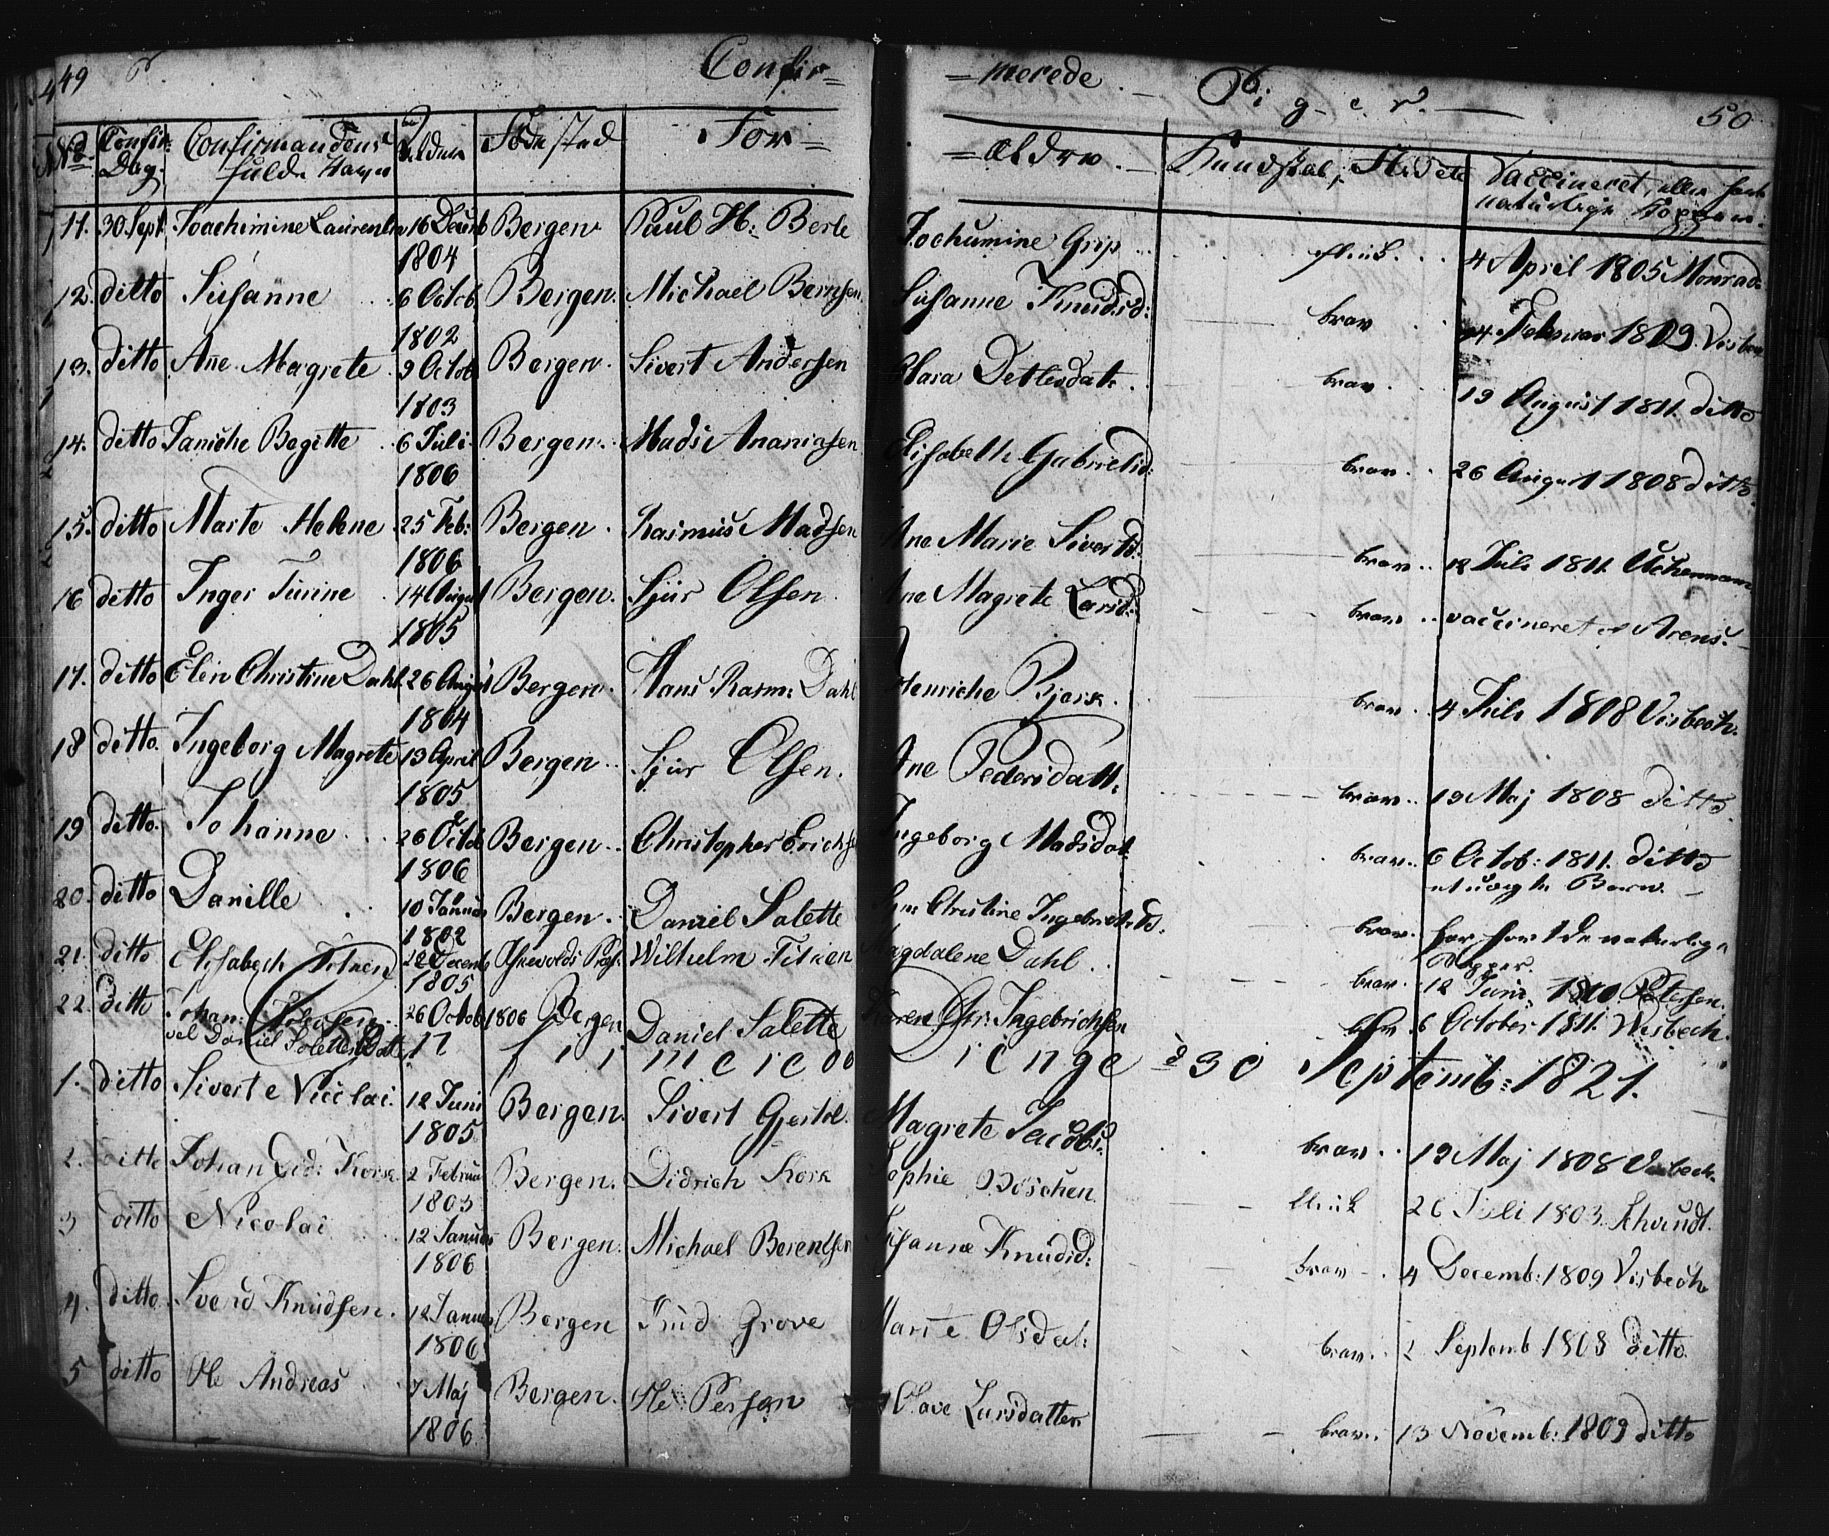 49 Confir=
=merede Piger. 50
No. Confir: Dag. Confirmandens fulde Navn Alder Födestad For=
=ældre. Kundskab, Flid etc Vaccineret, eller havt naturlige Kopper.
11. 30 Sept Joachimine Laurentin 16 Decmb 1804 Bergen Paul H: Berle Jochumine Grip flink. 4 April 1805 Monrad
12. ditto Susanne 6 Octob 1802 Bergen. Michael Bernsen Susanne Knudsd: brav 4 Februar 1809 Visbec
13. ditto Ane Magrete 9 Octob 1803 Bergen. Sivert Andersen Clara Detlevdatt. brav. 19 August 1811. ditto
14. ditto Janiche Begitte 6 Juli 1806 Bergen. Mads Ananiasen Elisabeth Gabrielsd: brav. 26 August 1808 ditto.
15. ditto Marte Helene 25 Feb: 1806 Bergen. Rasmus Madsen Ane Marie Sivertsd: brav. 12 Juli 1811. Uchermann
16 ditto Inger Turine 14 August 1805 Bergen. Sjur Olsen Ane Magrete Larsd: brav.. vaccineret af Arens.
17. ditto Elen Christine Dahl. 26 Augus 1804 Bergen. Hans Rasm: Dahl Henriche Bjerk. brav. 4 Juli 1808 Visbech.
18 ditto. Ingeborg Magrete 13 April 1805 Bergen. Sjur Olsen. Ane Pedersdatt: brav.. 19 Maj 1808 ditto.
19 ditto. Johanne 26 Octob 1806 Bergen.. Christopher Erichs Ingeborg Madsdat. brav.. 6 Octob: 1811. ditto
et uægte Barn.
20. ditto Danille 10 Januar 1802 Bergen. Daniel Salette Christine Ingebrectsd. brav. har havt de naturlige Kopper.
21. ditto Elisabech Titken 22 Decemb 1805 Wilhelm Titken Magdalene Dahl brav. 12 Juni 1810. Petersen.
22. ditto Johan: 26 Octob 1806 Bergen Daniel Salette Karen Chr: Ingebrichsen 6 October 1811. Wisbech.
vel Daniel Salettes Datt
Confirmerede Drenge d 30 Septemb: 1821.
1. ditto Sivert Nicolai. 12 Juni 1805 Bergen. Sivert Gjertsd. Magrete Jacobs: brav.. 19 Maj 1808 Visbech.
2. ditto Johan Did: Kork 2 Februar 1803 Bergen. Didrich Kork Sophie Böschen flink 26 Juli 1803. Schmidt.
3 ditto Nicolai 12 Januar 1806 Bergen. Michael Berentsen Susanne Knudsd: brav 4 Decemb: 1809 Visbech
4. ditto. Sverd Knudsen. 12 Januar 1806 Bergen Knud Grove Marite Olsdat: brav. 2 Septemb 1808 ditto.
5 ditto Ole Andreas 7 Maj 1806 Bergen. Ole Persen Olave Larsdatter brav.. 13 Novemb: 1809 ditto